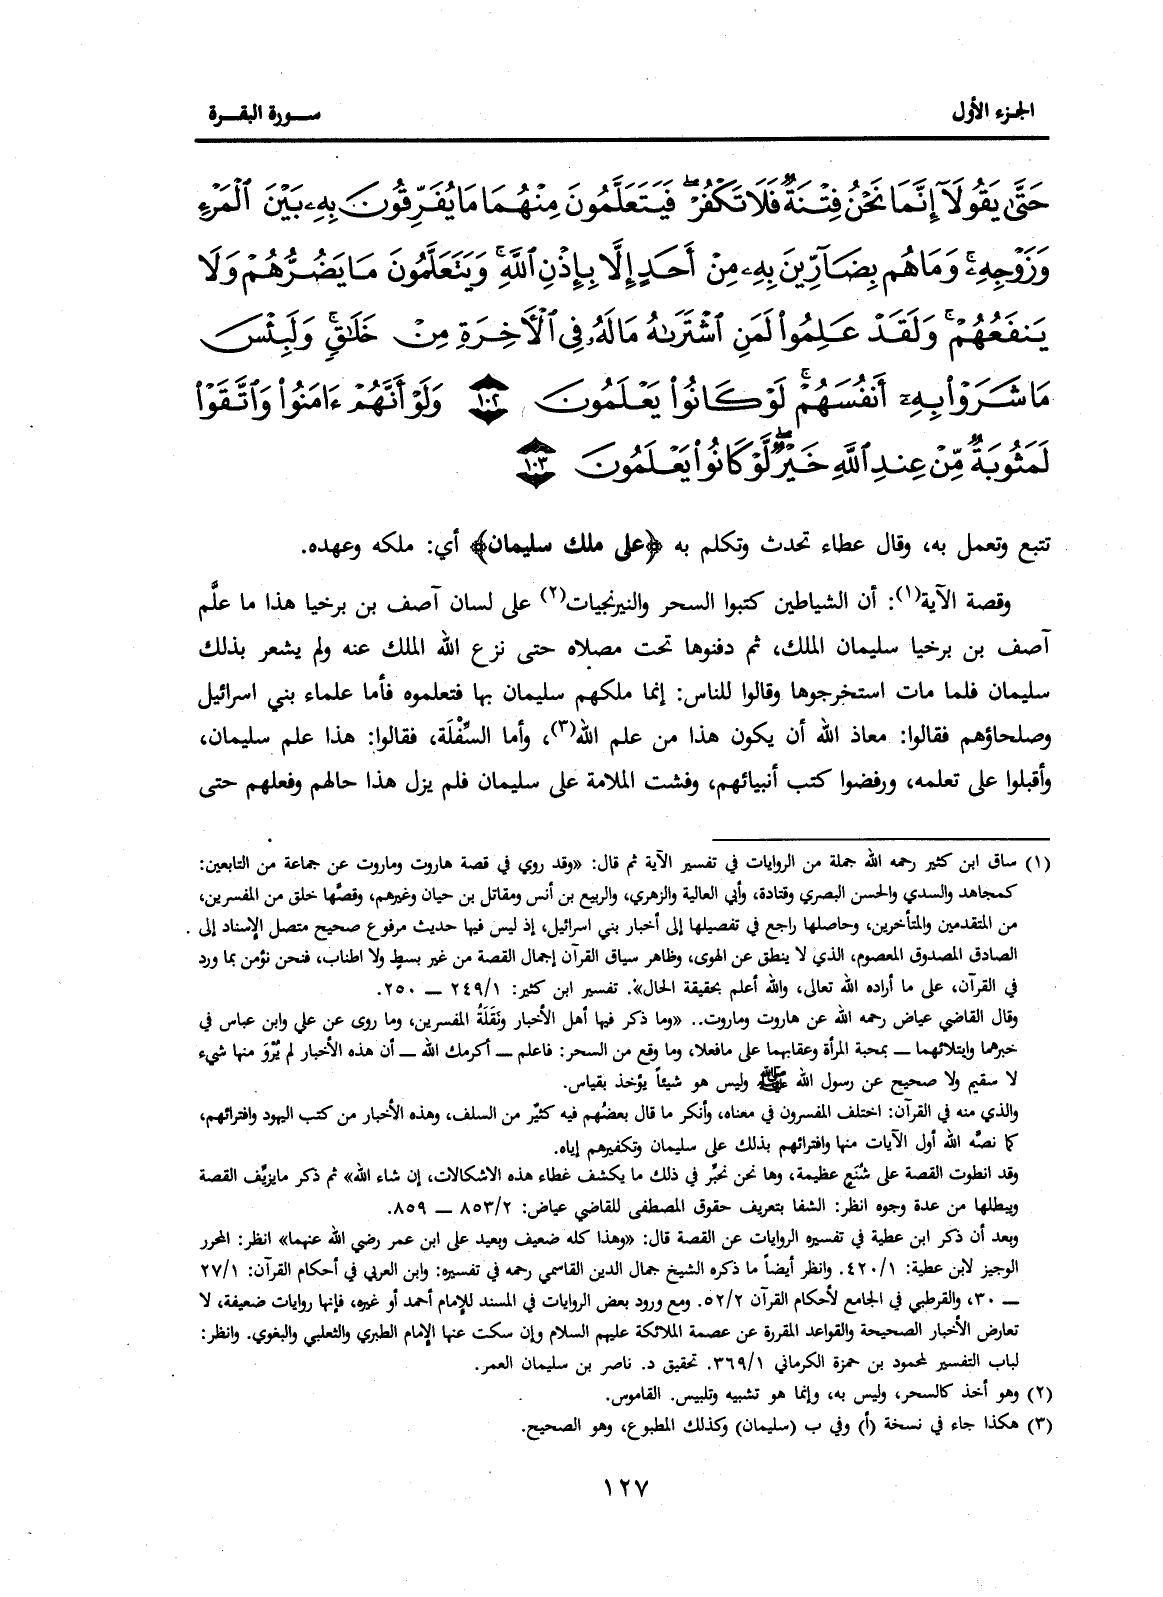 الجزء الأول
سورة البقرة
حَتَّىٰ يَقُولَآ إِنَّمَا نَحْنُ فِتْنَةٌ فَلَا تَكْفُرْ ۖ فَيَتَعَلَّمُونَ مِنْهُمَا مَا يُفَرِّقُونَ بِهِۦ بَيْنَ ٱلْمَرْءِ
وَزَوْجِهِۦ ۚ وَمَا هُم بِضَآرِّينَ بِهِۦ مِنْ أَحَدٍ إِلَّا بِإِذْنِ ٱللَّهِ ۚ وَيَتَعَلَّمُونَ مَا يَضُرُّهُمْ وَلَا
يَنفَعُهُمْ ۚ وَلَقَدْ عَلِمُوا۟ لَمَنِ ٱشْتَرَىٰهُ مَا لَهُۥ فِى ٱلْـَٔاخِرَةِ مِنْ خَلَٰقٍ ۚ وَلَبِئْسَ
مَا شَرَوْا۟ بِهِۦٓ أَنفُسَهُمْ ۚ لَوْ كَانُوا۟ يَعْلَمُونَ ١٠٢ وَلَوْ أَنَّهُمْ ءَامَنُوا۟ وَٱتَّقَوْا۟
لَمَثُوبَةٌ مِّنْ عِندِ ٱللَّهِ خَيْرٌ ۖ لَّوْ كَانُوا۟ يَعْلَمُونَ ١٠٣
تتبع وتعمل به، وقال عطاء تحدث وتكلم به ﴿على ملك سليمان﴾ أي: ملكه وعهده.
وقصة الآية(١): أن الشياطين كتبوا السحر والنيرنجيات(٢) على لسان آصف بن برخيا هذا ما علَّم
آصف بن برخيا سليمان الملك، ثم دفنوها تحت مصلاه حتى نزع الله الملك عنه ولم يشعر بذلك
سليمان فلما مات استخرجوها وقالوا للناس: إنما ملكهم سليمان بها فتعلموه فأما علماء بني اسرائيل
وصلحاؤهم فقالوا: معاذ الله أن يكون هذا من علم الله(٣)، وأما السِّفْلَة، فقالوا: هذا علم سليمان،
وأقبلوا على تعلمه، ورفضوا كتب أنبيائهم، وفشت الملامة على سليمان فلم يزل هذا حالهم وفعلهم حتى
(١) ساق ابن كثير رحمه الله جملة من الروايات في تفسير الآية ثم قال: «وقد روي في قصة هاروت وماروت عن جماعة من التابعين:
كمجاهد والسدي والحسن البصري وقتادة، وأبي العالية والزهري، والربيع بن أنس ومقاتل بن حيان وغيرهم، وقصَّها خلق من المفسرين،
من المتقدمين والمتأخرين، وحاصلها راجع في تفصيلها إلى أخبار بني اسرائيل، إذ ليس فيها حديث مرفوع صحيح متصل الإسناد إلى
الصادق المصدوق المعصوم، الذي لا ينطق عن الهوى، وظاهر سياق القرآن إجمال القصة من غير بسطٍ ولا اطناب، فنحن نؤمن بما ورد
في القرآن، على ما أراده الله تعالى، والله أعلم بحقيقة الحال». تفسير ابن كثير: ٢٤٩/١ ــ ٢٥٠.
وقال القاضي عياض رحمه الله عن هاروت وماروت.. «وما ذكر فيها أهل الأخبار ونَقَلَةُ المفسرين، وما روى عن علي وابن عباس في
خبرهما وابتلائهما ــ بمحبة المرأة وعقابهما على مافعلا، وما وقع من السحر: فاعلم ــ أكرمك الله ــ أن هذه الأخبار لم يُرْوَ منها شيء
لا سقيم ولا صحيح عن رسول الله ﷺ وليس هو شيئاً يؤخذ بقياس.
والذي منه في القرآن: اختلف المفسرون في معناه، وأنكر ما قال بعضُهم فيه كثيٌر من السلف، وهذه الأخبار من كتب اليهود وافترائهم،
كما نصَّه الله أول الآيات منها وافترائهم بذلك على سليمان وتكفيرهم إياه.
وقد انطوت القصة على شُنَعٍ عظيمة، وها نحن نحبِّر في ذلك ما يكشف غطاء هذه الاشكالات، إن شاء الله» ثم ذكر مايزيِّف القصة
ويبطلها من عدة وجوه انظر: الشفا بتعريف حقوق المصطفى للقاضي عياض: ٨٥٣/٢ ــ ٨٥٩.
وبعد أن ذكر ابن عطية في تفسيره الروايات عن القصة قال: «وهذا كله ضعيف وبعيد على ابن عمر رضي الله عنهما» انظر: المحرر
الوجيز لابن عطية: ٤٢٠/١. وانظر أيضاً ما ذكره الشيخ جمال الدين القاسمي رحمه في تفسيره: وابن العربي في أحكام القرآن: ٢٧/١
ــ ٣٠، والقرطبي في الجامع لأحكام القرآن ٥٢/٢. ومع ورود بعض الروايات في المسند للإمام أحمد أو غيره، فإنها روايات ضعيفة، لا
تعارض الأخبار الصحيحة والقواعد المقررة عن عصمة الملائكة عليهم السلام وإن سكت عنها الإمام الطبري والثعلبي والبغوي. وانظر:
لباب التفسير لمحمود بن حمزة الكرماني ٣٦٩/١. تحقيق د. ناصر بن سليمان العمر.
(٢) وهو أخذ كالسحر، وليس به، وإنما هو تشبيه وتلبيس. القاموس.
(٣) هكذا جاء في نسخة (أ) وفي ب (سليمان) وكذلك المطبوع، وهو الصحيح.
١٢٧